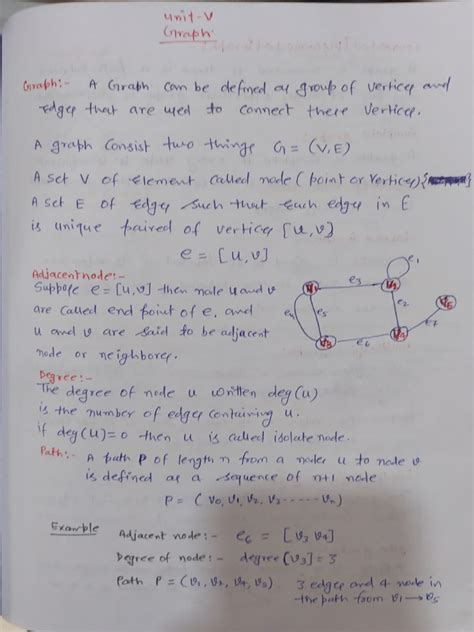 Unit-V
Graph
Graph:- A Graph can be defined as group of vertices and
Edges that are used to connect these vertices.
A graph Consist two things G = (V, E)
A set V of Element called node (point or vertices)
A set E of Edges such that Each edges in E
is unique paired of vertices [u, v]
e = [u, v]
Adjacent node:-
Suppose e = [u, v] then node u and v
are called end point of e, and
u and v are said to be adjacent
node or neighbores.
e1
e3
v1
v2
e4
e5
e2
v5
e7
v3
e6
v4
Degree:-
The degree of node u written deg(u)
is the number of edges containing u.
if deg(u)=0 then u is called isolate node.
Path:- A path P of length n from a nodes u to node v
is defined as a sequence of n+1 node
P = (v0, v1, v2, v3 ------ vn)
Example
Adjacent node:- e6 = [v3 v4]
Degree of node:- degree [v3] = 3
Path P = (v1, v2, v4, v5)
3 edges and 4 node in
the path from v1 → v5